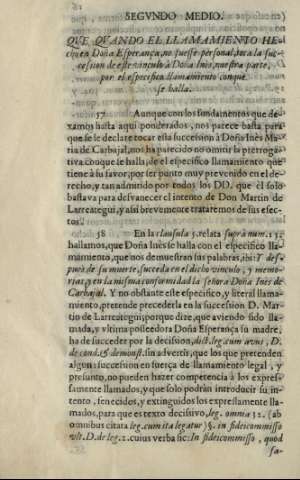 SEGVNDO MEDIO.
QVE QVANDO EL LLAMAMIENTO HE-
cho en Doña Esperança, no fuesse personal, para la suc-
cession de este vinculo à Doña Inès, nuestra parte,
por el especifico llamamiento conque
se halla.
57 Aunque con los fundamentos que de-
xamos hasta aqui ponderados, nos parece basta para
que se le declare tocar esta succession à Doña Inès Ma-
ria de Carbajal, nos ha parecido no omitir la prerroga-
tiva conque le halla, de el especifico llamamiento que
tiene à su favor, por ser punto muy prevenido en el de-
recho, y tan admitido por todos los DD. que èl solo
bastava para desvanecer el intento de Don Martin de
Larreategui, y assi brevemente trataremos de sus efec-
tos.
58 En la clausula 5. relata suprà num. 15.
hallamos, que Doña Inès se halla con el especifico lla-
mamiento, que nos demuestran sus palabras, ibi: Y des-
pues de su muerte, succeda en el dicho vinculo, y memo-
rias, y en la misma conformidad la señora Doña Inès de
Carbajal. Y no obstante este especifico, y literal llama-
miento, pretende precederla en la succession D. Mar-
tin de Larreategui, porque dize, que aviendo sido lla-
mada, y vltima posseedora Doña Esperança su madre,
ha de succeder por la decision, dict. leg. cum avus, D.
de cond. & demonst. sin advertir, que los que pretenden
algun succession en fuerça de llamamiento legal, y
presunto, no pueden hazer competencia à los expres-
samente llamados, y que solo podràn introducir su in-
tento, fenecidos, y extinguidos los expressamente lla-
mados, para que es texto decisivo, leg. omnia 32. (ab
omnibus citata leg. cum ita legatur) §. in fideicommisso
vlt. D. de leg. 2. cuius verba sic: In fideicommisso, quod
fa-